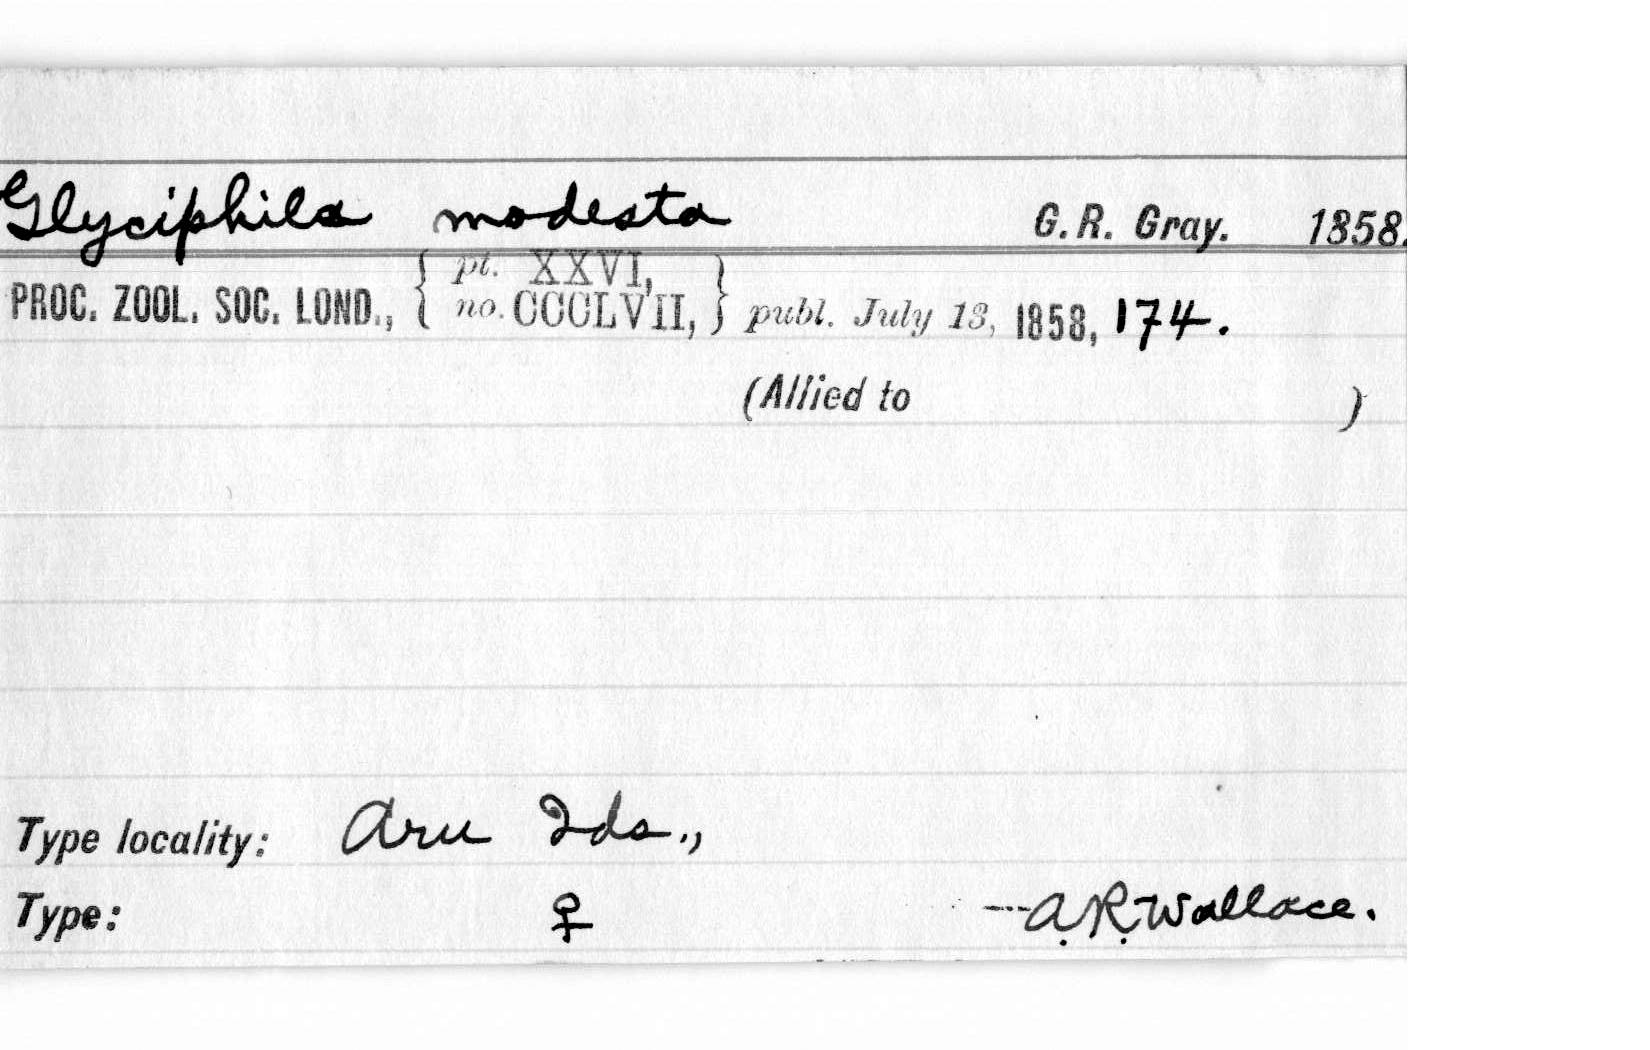 Glyciphila modesta G.R. Gray. 1858.
PROC. ZOOL. SOC. LOND., { pt. XXVI, no. CCCLVII, } publ. July 13, 1858, 174.
(Allied to )
Type locality: Aru Ids.,
Type: ♀ ---A.R. Wallace.